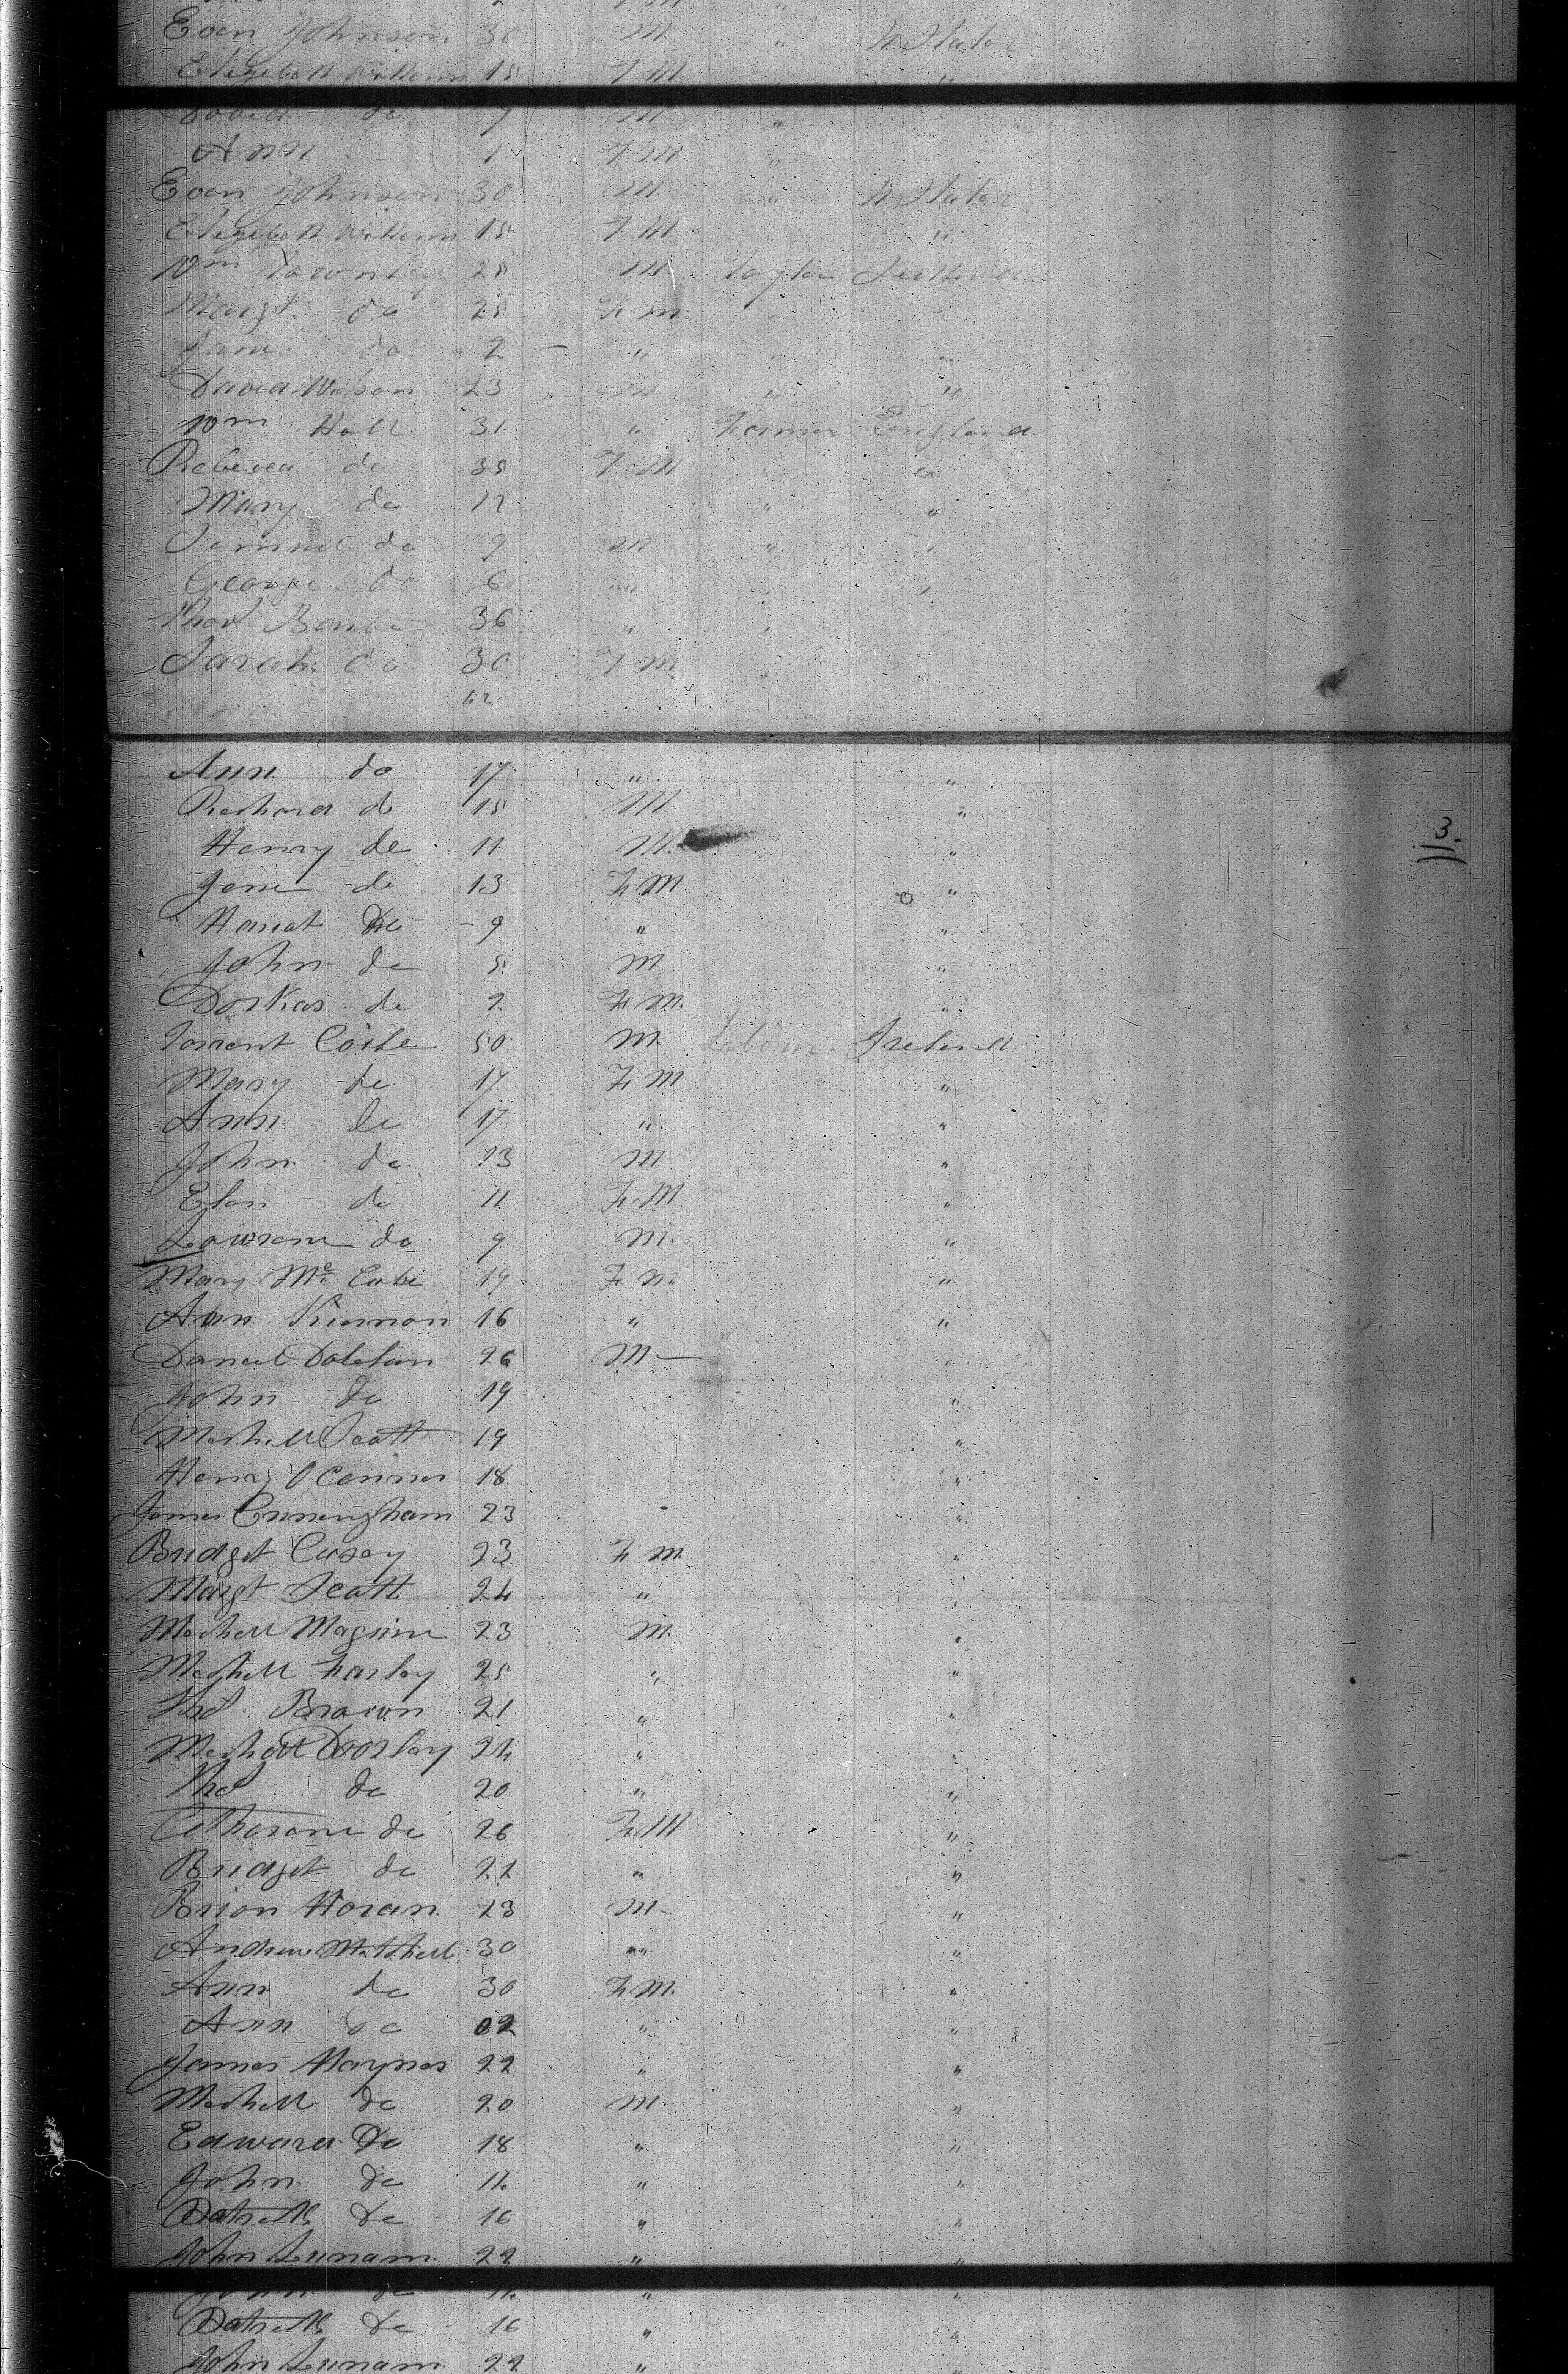 Evan Johnson 30 M " W States
Elezebeth Williams 18 F M "
David do 7 M "
Ann 1 F M "
Evan Johnson 30 M " W States
Elezebeth Williams 18 F M "
Wm Townley 28 M Taylor Scotland
Margt do 28 F M " "
Jane do 2 " " "
David Watson 23 M " "
Wm Hall 31 " Farmer England
Rebecca do 38 F M " "
Mary do 12 " "
Semuel do 9 M " "
George do 6 " " "
Thos 36 " "
Sarah do 30 F M "
42
Ann do 17 " "
Richard do 15 M "
Henry do 11 M "
3
Jane do 13 F M "
Hariat do 9 " "
John do 5 M "
Dorkas do 2 F M "
Coile 50 M Labour Ireland
Mary do 17 F M "
Ann do 17 " "
John do 13 M "
Elen do 11 F M "
Lawrence do 9 M "
Mary Mc Cabe 19 F M "
Ann Kiernon 16 " "
Daniel 26 M "
John do 19 "
Mechell Scott 19 "
Henry O Connor 18 "
James Cunengham 23 "
Bridget Casey 23 F M "
Margt Scott 24 " "
Mechell Maguire 23 M "
Mechell Farley 25 " "
Thos Brown 21 " "
Mechell Doorley 24 " "
Thos do 20 " "
Catherane do 26 F M "
Bridget do 22 " "
Brion Horan 23 M "
Andrew Mitchell 30 " "
Ann do 30 F M "
Ann do 02 " "
James Haynes 22 " "
Mechell do 20 M "
Edward do 18 " "
John do 11 " "
Patrick do 16 " "
John Lunam 22 " "
John do 11 " "
Patrick do 16 " "
John Lunam 22 "